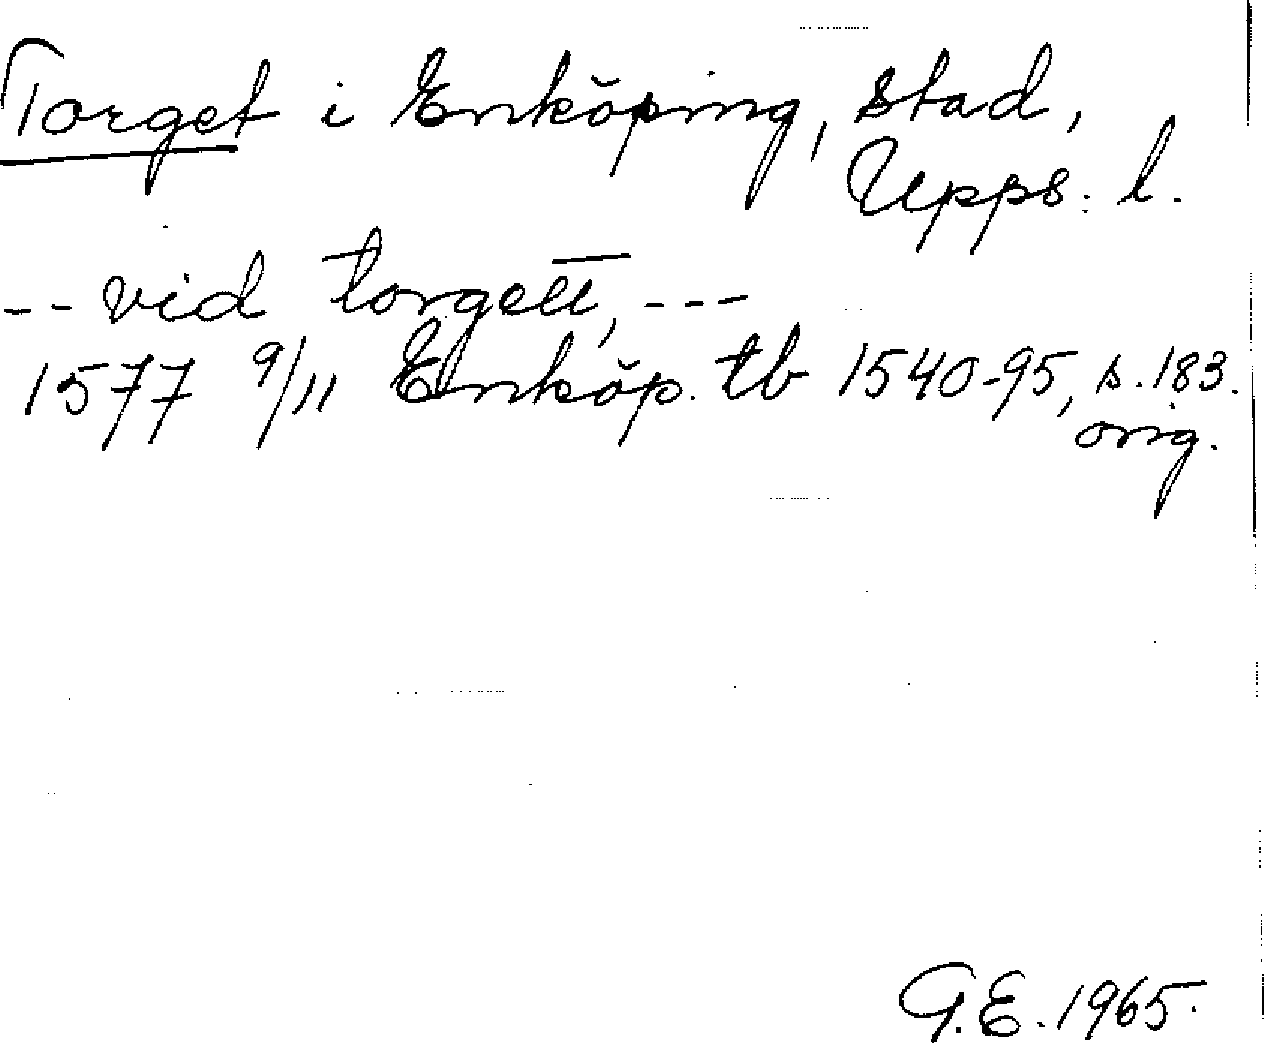 Torget i Enköping, stad,
Upps. l.
-- vid torgett, ---
1577 9/11 Enköp. tb 1540-95, s. 183.
orig.
G.E. 1965.